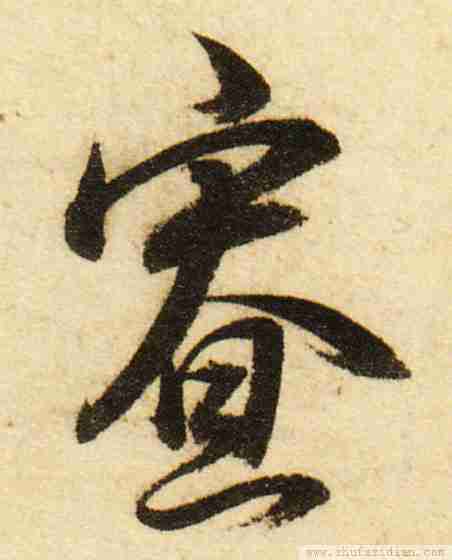 睿
www.shufazidian.com